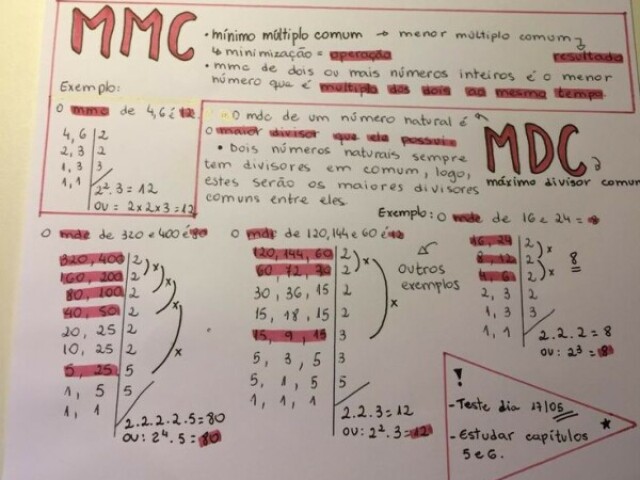 MMC
• mínimo múltiplo comum → menor múltiplo comum
↳ minimização = operação resultado
• mmc de dois ou mais números inteiros é o menor
número que é multiplo dos dois ao mesmo tempo.
Exemplo:
O mmc de 4,6 é 12.
4, 6 | 2
2, 3 | 2
1, 3 | 3
1, 1
2².3 = 12
ou = 2x2x3 = 12
O mdc de um número natural é
o maior divisor que ele possui.
• Dois números naturais sempre
tem divisores em comum, logo,
estes serão os maiores divisores
comuns entre eles.
MDC
máximo divisor comum
Exemplo: O mdc de 16 e 24 = 8
16, 24 | 2
8, 12 | 2
4, 6 | 2
2, 3 | 2
1, 3 | 3
1, 1
x
x
8
2.2.2 = 8
ou: 2³ = 8
O mdc de 320 e 400 é 80
320, 400 | 2
160, 200 | 2
80, 100 | 2
40, 50 | 2
20, 25 | 2
10, 25 | 2
5, 25 | 5
1, 5 | 5
1, 1
x
x
x
x
2.2.2.2.5 = 80
ou: 2⁴.5 = 80
O mdc de 120,144 e 60 é 12
120, 144, 60 | 2
60, 72, 30 | 2
30, 36, 15 | 2
15, 18, 15 | 2
15, 9, 15 | 3
5, 3, 5 | 3
5, 1, 5 | 5
1, 1, 1
x
x
2.2.3 = 12
ou: 2².3 = 12
Outros
exemplos
!
- Teste dia 17/05
- Estudar capítulos
5 e 6.